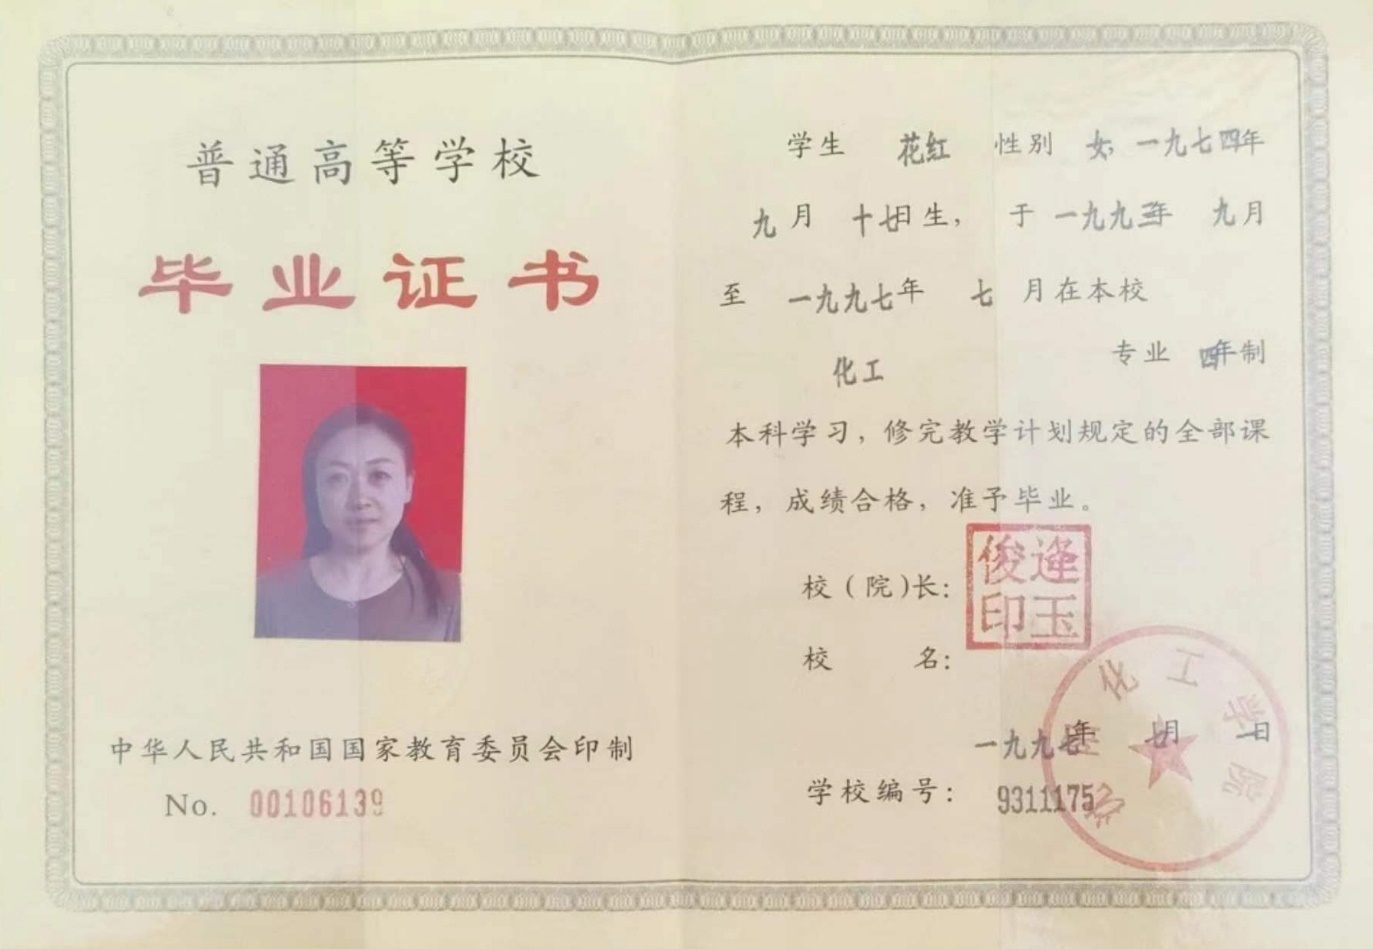 普通高等学校
毕业证书
中华人民共和国国家教育委员会印制
No. 00106139
学生 花红 性别 女, 一九七四年
九月 十七日生, 于 一九九三年 九月
至 一九九七年 七 月在本校
化工 专业 四年制
本科学习, 修完教学计划规定的全部课
程, 成绩合格, 准予毕业。
校(院)长:
逄玉俊印
校 名:
化工学院
一九九七年 七月 日
学校编号: 9311175